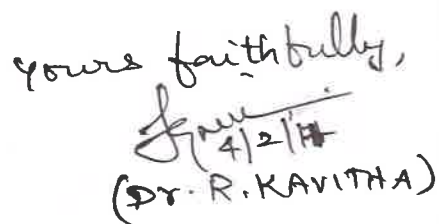 yours faithfully,
4/2/
(Dr. R. KAVITHA)